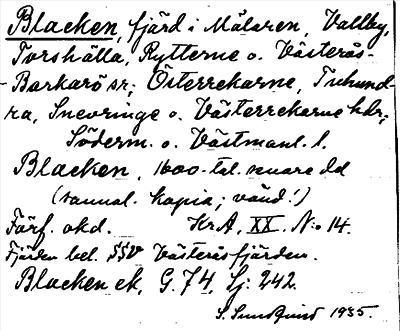 Blacken, fjärd i Mälaren, Vallby,
Torshälla, Rytterne o. Västerås-
Barkarö snr; Österrekarne, Tuhund-
ra, Snevringe o. Västerrekarne hdr;
Söderm. o. Västmanl. l.
Blacken, 1600-tal. senare dd
(sannol. kopia; vänd!)
Förf. okd. KrA, XX. N:o 14.
Fjärden bel. SSV Västeråsfjärden.
Blacken ek, G. 74, Lj: 242.
S. Sundquist 1935.